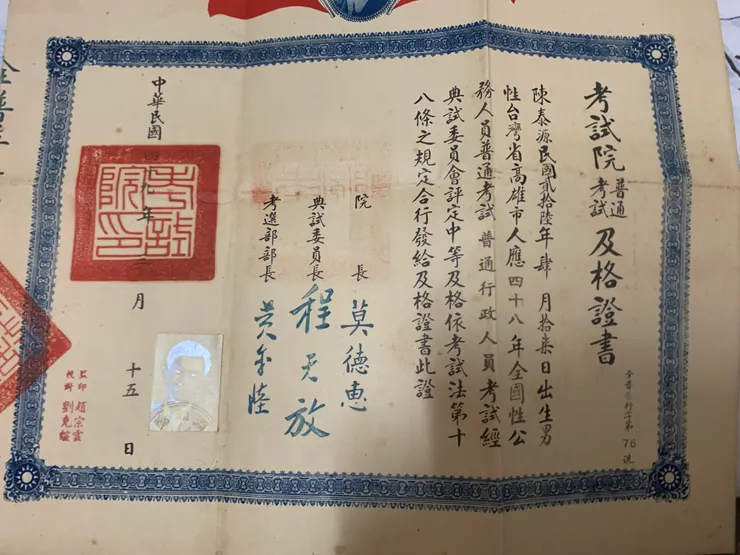 考試院普通考試及格證書
全普普行字第76號
陳泰源民國貳拾陸年肆月拾柒日出生男
性台灣省高雄市人應四十八年全國性公
務人員普通考試普通行政人員考試經
典試委員會評定中等及格依考試法第十
八條之規定合行發給及格證書此證
院長 莫德惠
典試委員長 程天放
考選部部長 黃季陸
中華民國四十九年三月十五日
考試院印
監印 趙宗雲
校對